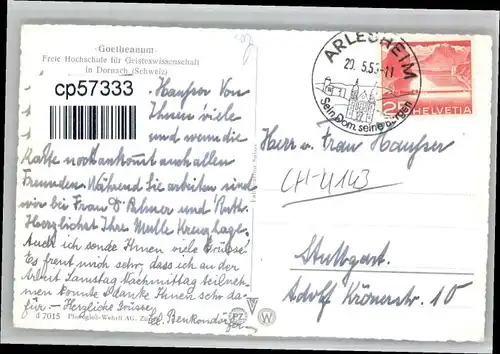 ·Goetheanum·
Freie Hochschule für Geisteswissenschaft
in Dornach (Schweiz)
cp57333
Von
Ihnen viele
und wenn die
Karte noch ankomt auch allen
Freunden. Während Sie arbeiten sind
wir bei Frau Dr Palmer und Ruth.
Herzlichst Ihre
Auch ich sende Ihnen viele Grüsse!
Es freut mich sehr, dass ich an der
Arbeit Samstag Nachmittag teilneh-
men konnte & danke Ihnen sehr da-
für. – Herzliche Grüsse,
d 7015 Photoglob-Wehrli AG, Zürich
PZ
W
ARLESHEIM
20.5.53-11
Sein Dom, seine Burgen
25 HELVETIA
Herr u. Frau Hauser
CH-4143
Stuttgart.
Adolf Krönerstr. 10